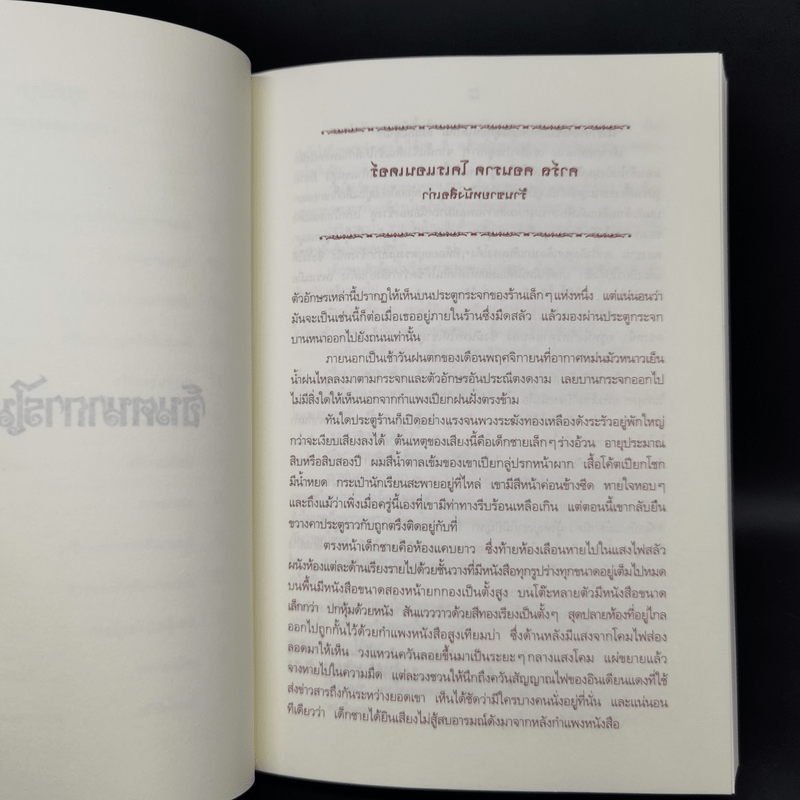 คาร์ล คอนราด โคเรแอนเดอร์
ร้านขายหนังสือเก่า
ตัวอักษรเหล่านี้ปรากฏให้เห็นบนประตูกระจกของร้านเล็กๆ แห่งหนึ่ง แต่แน่นอนว่า
มันจะเป็นเช่นนี้ก็ต่อเมื่อเธออยู่ภายในร้านซึ่งมืดสลัว แล้วมองผ่านประตูกระจก
บานหนาออกไปยังถนนเท่านั้น
ภายนอกเป็นเช้าวันฝนตกของเดือนพฤศจิกายนที่อากาศหม่นมัวหนาวเย็น
น้ำฝนไหลลงมาตามกระจกและตัวอักษรอันประณีตงดงาม เลยบานกระจกออกไป
ไม่มีสิ่งใดให้เห็นนอกจากกำแพงเปียกฝนฝั่งตรงข้าม
ทันใดประตูร้านก็เปิดอย่างแรงจนพวงระฆังทองเหลืองดังระรัวอยู่พักใหญ่
กว่าจะเงียบเสียงลงได้ ต้นเหตุของเสียงนี้คือเด็กชายเล็กๆ ร่างอ้วน อายุประมาณ
สิบหรือสิบสองปี ผมสีน้ำตาลเข้มของเขาเปียกลู่ปรกหน้าผาก เสื้อโค้ตเปียกโชก
มีน้ำหยด กระเป๋านักเรียนสะพายอยู่ที่ไหล่ เขามีสีหน้าค่อนข้างซีด หายใจหอบๆ
และถึงแม้ว่าเพิ่งเมื่อครู่นี้เองที่เขามีท่าทางรีบร้อนเหลือเกิน แต่ตอนนี้เขากลับยืน
ขวางคาประตูราวกับถูกตรึงติดอยู่กับที่
ตรงหน้าเด็กชายคือห้องแคบยาว ซึ่งท้ายห้องเลือนหายไปในแสงไฟสลัว
ผนังห้องแต่ละด้านเรียงรายไปด้วยชั้นวางที่มีหนังสือทุกรูปร่างทุกขนาดอยู่เต็มไปหมด
บนพื้นมีหนังสือขนาดสองหน้ายกกองเป็นตั้งสูง บนโต๊ะหลายตัวมีหนังสือขนาด
เล็กกว่า ปกหุ้มด้วยหนัง สันแวววาวด้วยสีทองเรียงเป็นตั้งๆ สุดปลายห้องที่อยู่ไกล
ออกไปถูกกั้นไว้ด้วยกำแพงหนังสือสูงเทียมบ่า ซึ่งด้านหลังมีแสงจากโคมไฟส่อง
ลอดมาให้เห็น วงแหวนควันลอยขึ้นมาเป็นระยะๆ กลางแสงโคม แผ่ขยายแล้ว
จางหายไปในความมืด แต่ละวงชวนให้นึกถึงควันสัญญาณไฟของอินเดียนแดงที่ใช้
ส่งข่าวสารถึงกันระหว่างยอดเขา เห็นได้ชัดว่ามีใครบางคนนั่งอยู่ที่นั่น และแน่นอน
ทีเดียวว่า เด็กชายได้ยินเสียงไม่สู้สบอารมณ์ดังมาจากหลังกำแพงหนังสือ